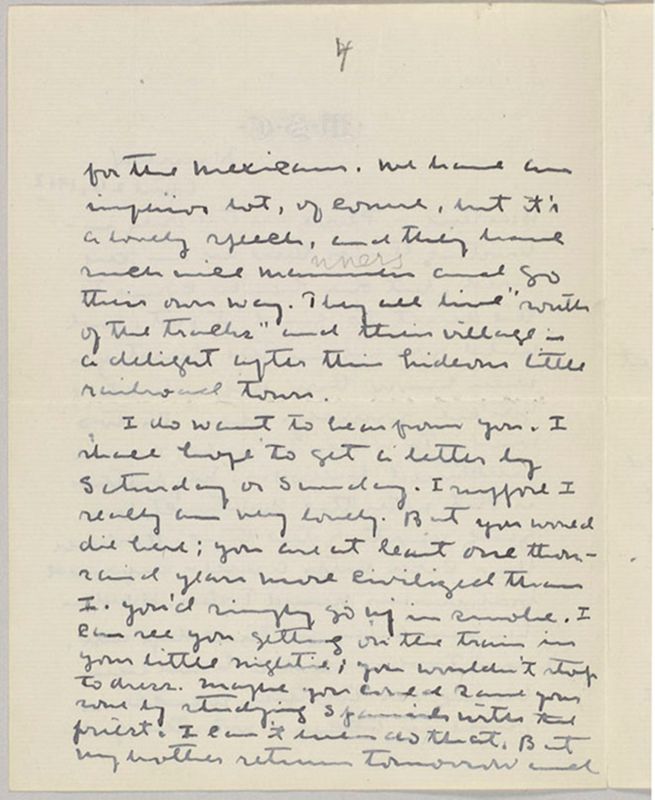 4
for the Mexicans. We have an
impious lot, of course, but it's
a lovely speech, and they have
nners
such nice manners and go
their own way. They all live "south
of the tracks" and their village is
a delight after this hideous little
railroad town.
I do want to hear from you. I
shall hope to get a letter by
Saturday or Sunday. I suppose I
really am very lonely. But you would
die here; you are at least one thou-
sand years more civilized than
I. You'd simply go up in smoke. I
can see you getting on the train in
your little nightie; you wouldn't stop
to dress. Maybe you could save your
soul by studying Spanish with the
priest. I can't even do that. But
my brother returns tomorrow and